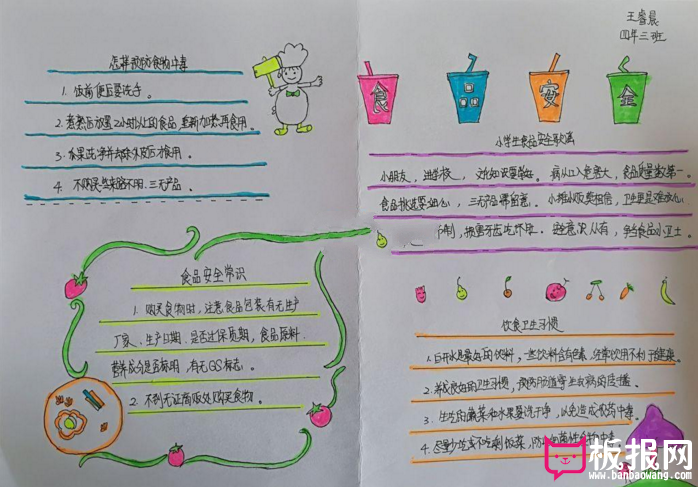 王睿晨
四年三班
食品安全
怎样预防食物中毒
1. 饭前便后要洗手。
2. 煮熟后放置2小时以上的食品，重新加热再食用。
3. 水果洗净并去除外皮后才食用。
4 不购买来路不明，三无产品。
食品安全常识
1. 购买食物时，注意食品包装有无生产
厂家，生产日期，是否过保质期，食品原料
营养成分是否标明，有无QS标志。
2. 不到无证商贩处购买食物。
小学生食品安全歌谣
小朋友，进学校，病从口入危害大，食品质量数第一。
食品挑选要细心，三无产品要留意。小摊小贩莫相信，卫生
争当食品小卫士。
饮食卫生习惯
1. 白开水是最好的饮料，一些饮料含有色素，经常饮用不利于健康。
2. 养成良好的卫生习惯，预防肠道寄生虫病的传播。
3. 生吃的蔬菜和水果要洗干净，以免造成农药中毒。
4. 尽量少吃或不吃剩饭菜，防止细菌性食物中毒。
板报网
www.banbaowang.com